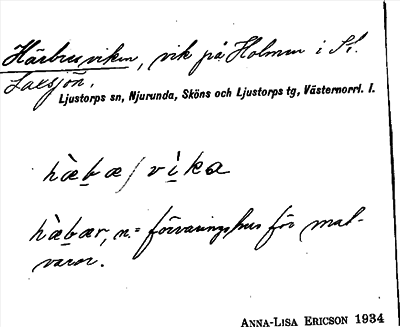 Härbresviken, vik på Holmen i St.
Laxsjön.
Ljustorps sn, Njurunda, Sköns och Ljustorps tg, Västernorrl. l.
hæ̀bæ/vìka
hæ̀bær, n. = förvaringshus för mat-
varor.
ANNA-LISA ERICSON 1934